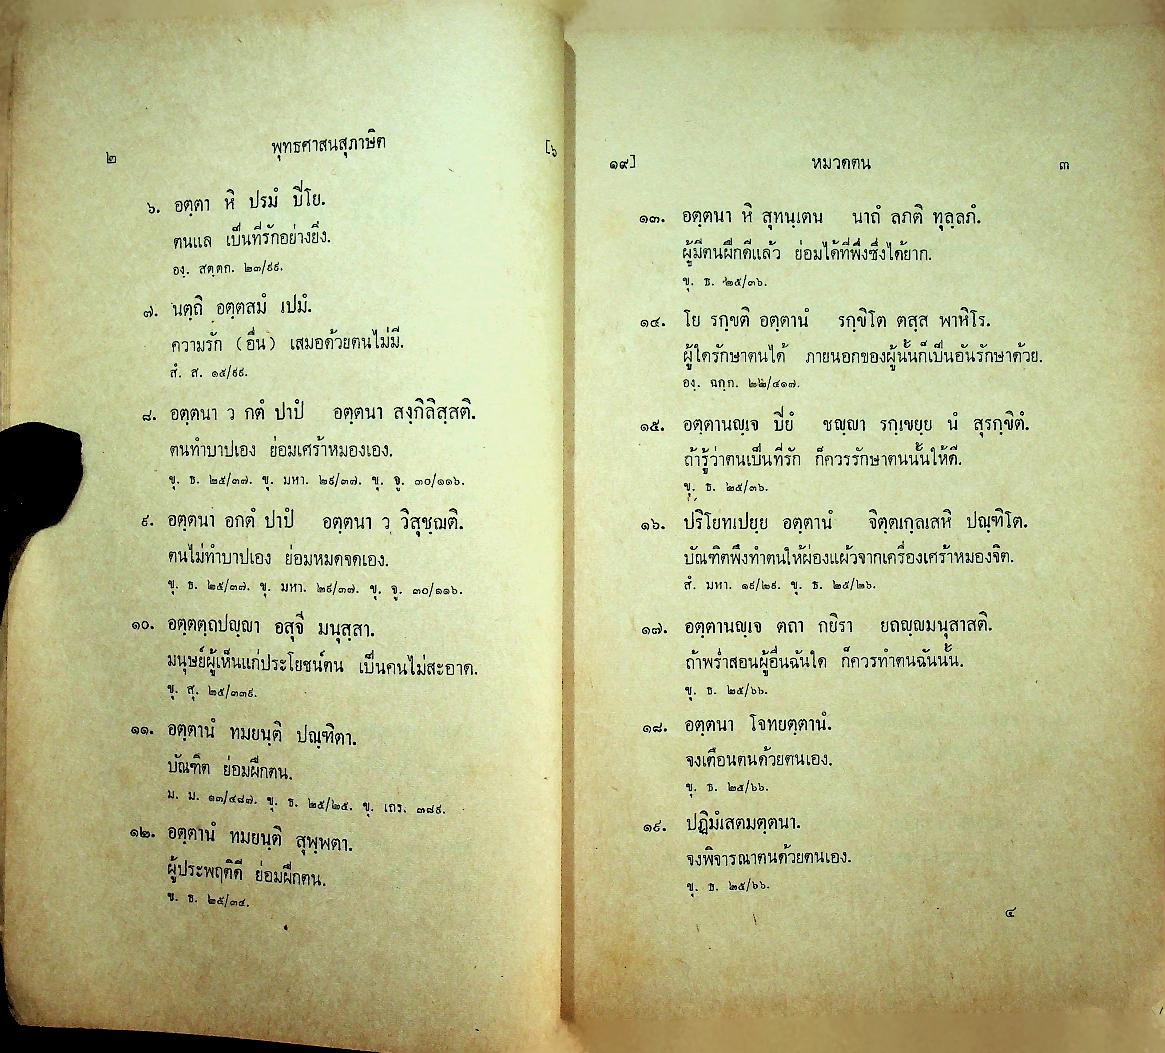 ๒ พุทธศาสนสุภาษิต [๖
๖. อตฺตา หิ ปรมํ ปิโย.
ตนแล เป็นที่รักอย่างยิ่ง.
องฺ. สตฺตก. ๒๓/๙๙.
๗. นตฺถิ อตฺตสมํ เปมํ.
ความรัก (อื่น) เสมอด้วยตนไม่มี.
สํ. ส. ๑๕/๙๙.
๘. อตฺตนา ว กตํ ปาปํ อตฺตนา สงฺกิลิสฺสติ.
ตนทำบาปเอง ย่อมเศร้าหมองเอง.
ขุ. ธ. ๒๕/๓๗. ขุ. มหา. ๒๙/๓๗. ขุ. จู. ๓๐/๑๑๖.
๙. อตฺตนา อกตํ ปาปํ อตฺตนา ว วิสุชฺฌติ.
ตนไม่ทำบาปเอง ย่อมหมดจดเอง.
ขุ. ธ. ๒๕/๓๗. ขุ. มหา. ๒๙/๓๗. ขุ. จู. ๓๐/๑๑๖.
๑๐. อตฺตตฺถปญฺญา อสุจี มนุสฺสา.
มนุษย์ผู้เห็นแก่ประโยชน์ตน เป็นคนไม่สะอาด.
ขุ. สุ. ๒๕/๓๓๙.
๑๑. อตฺตานํ ทมยนฺติ ปณฺฑิตา.
บัณฑิต ย่อมฝึกตน.
ม. ม. ๑๓/๔๘๗. ขุ. ธ. ๒๕/๒๕. ขุ. เถร. ๓๘๙.
๑๒. อตฺตานํ ทมยนฺติ สุพฺพตา.
ผู้ประพฤติดี ย่อมฝึกตน.
ขุ. ธ. ๒๕/๓๔.
๑๙] หมวดตน ๓
๑๓. อตฺตนา หิ สุทนฺเตน นาถํ ลภติ ทุลฺลภํ.
ผู้มีตนฝึกดีแล้ว ย่อมได้ที่พึ่งซึ่งได้ยาก.
ขุ. ธ. ๒๕/๓๖.
๑๔. โย รกฺขติ อตฺตานํ รกฺขิโต ตสฺส พาหิโร.
ผู้ใดรักษาตนได้ ภายนอกของผู้นั้นก็เป็นอันรักษาด้วย.
องฺ. ฉกฺก. ๒๒/๔๑๗.
๑๕. อตฺตานญฺเจ ปิยํ ชญฺญา รกฺเขยฺย นํ สุรกฺขิตํ.
ถ้ารู้ว่าตนเป็นที่รัก ก็ควรรักษาตนนั้นให้ดี.
ขุ. ธ. ๒๕/๓๖.
๑๖. ปริโยทเปยฺย อตฺตานํ จิตฺตเกฺลเสหิ ปณฺฑิโต.
บัณฑิตพึงทำตนให้ผ่องแผ้วจากเครื่องเศร้าหมองจิต.
สํ. มหา. ๑๙/๒๙. ขุ. ธ. ๒๕/๒๖.
๑๗. อตฺตานญฺเจ ตถา กยิรา ยถญฺญมนุสาสติ.
ถ้าพร่ำสอนผู้อื่นฉันใด ก็ควรทำตนฉันนั้น.
ขุ. ธ. ๒๕/๖๖.
๑๘. อตฺตนา โจทยตฺตานํ.
จงเตือนตนด้วยตนเอง.
ขุ. ธ. ๒๕/๖๖.
๑๙. ปฏิมํเสตมตฺตนา.
จงพิจารณาตนด้วยตนเอง.
ขุ. ธ. ๒๕/๖๖.
๔